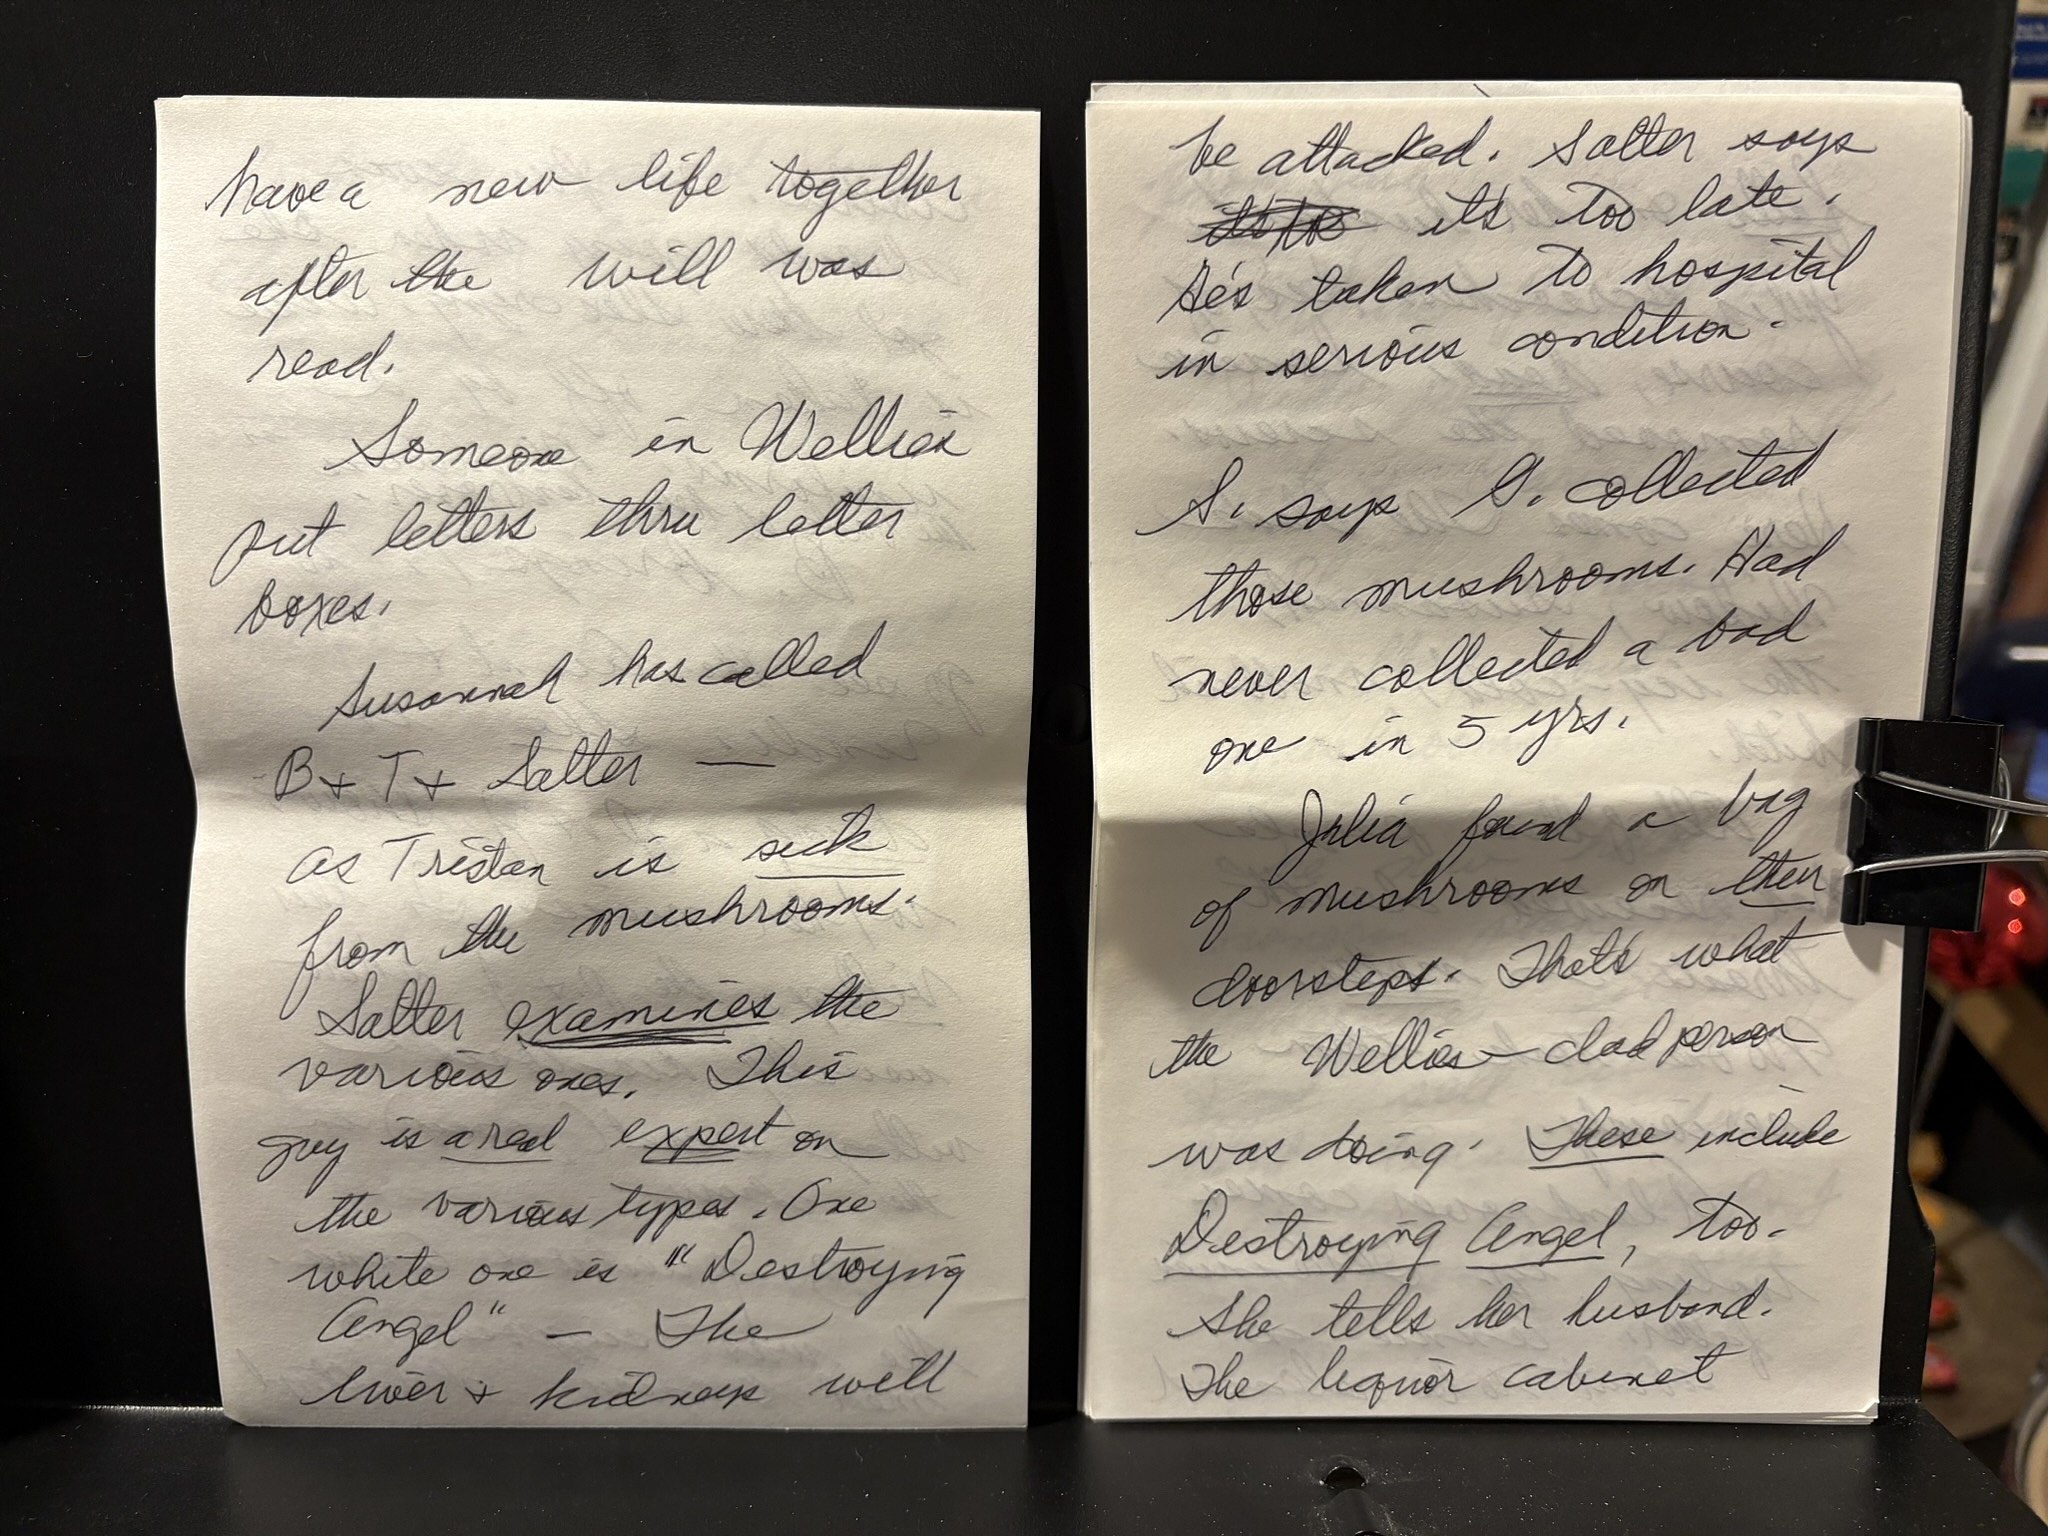 have a new life together
after the will was
read.
Someone in Wellies
put letters thru letter
boxes.
Susannah has called
B + T + Salter —
as Tristan is sick
from the mushrooms.
Salter examines the
various ones. This
guy is a real expert on
the various types. One
white one is "Destroying
Angel" — The
liver + kidneys will
be attacked. Salter says
it's too late.
He's taken to hospital
in serious condition.
S. says G. collected
those mushrooms. Had
never collected a bad
one in 5 yrs.
Julia found a bag
of mushrooms on their
doorsteps. That's what
the Wellies-clad person
was doing. These include
Destroying Angel, too.
She tells her husband.
The liquor cabinet